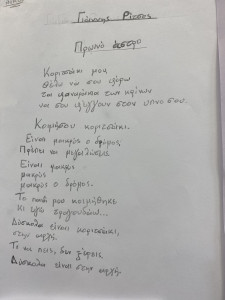 Γιάννης Ρίτσος
Πρωινό άστρο
Κοριτσάκι μου
θέλω να σου φέρω
τα φαναράκια των κρίνων
να σου φέγγουν στον ύπνο σου.
Κοιμήσου κοριτσάκι.
Είναι μακρύς ο δρόμος.
Πρέπει να μεγαλώσεις.
Είναι μακρύς
μακρύς
μακρύς ο δρόμος.
Το παιδί μου κοιμήθηκε
κι εγώ τραγουδάω...
Δύσκολα είναι κοριτσάκι,
στην αρχή.
Το να πεις, δεν ξέρεις
Δύσκολα είναι στην αρχή.